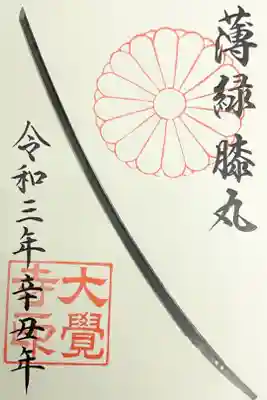 薄緑膝丸
令和三年辛丑年
大覺
寺